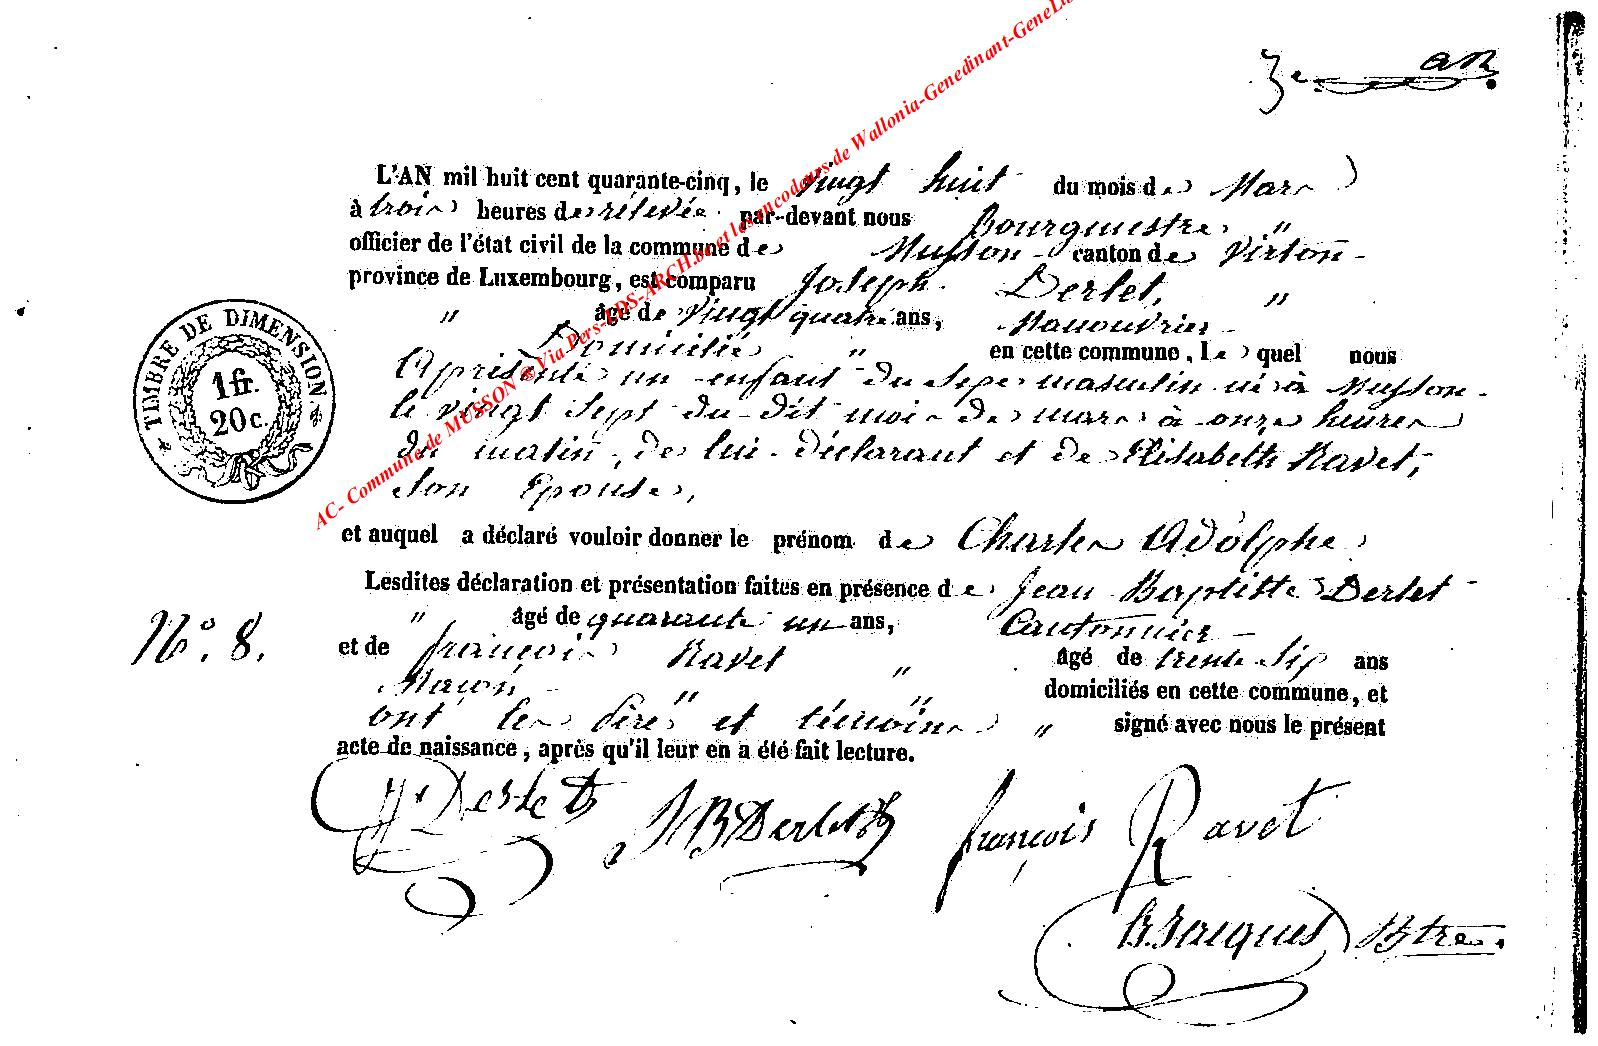 3e an
L'AN mil huit cent quarante-cinq, le vingt huit du mois de Mars
à trois heures de rélevée par-devant nous Bourgmestre "
officier de l'état civil de la commune de Musson - canton de Virton -
province de Luxembourg, est comparu Joseph Derlet, "
" âgé de vingt quatre ans, Manouvrier -
Domicilié " en cette commune, le quel nous
a présenté un enfant du sexe masculin né à Musson -
le vingt sept du dit mois de mars à onze heures
du matin, de lui déclarant et de Elisabeth Ravet,
son Epouse,
et auquel a déclaré vouloir donner le prénom de Charles Adolphe
Lesdites déclaration et présentation faites en présence de Jean Baptiste Derlet -
" âgé de quarante un ans, Cantonnier -
et de françois Ravet " âgé de trente six ans
Maçon - " " domiciliés en cette commune, et
ont les père et témoins " signé avec nous le présent
acte de naissance, après qu'il leur en a été fait lecture.
N° 8.
TIMBRE DE DIMENSION
1 fr.
20 c.
Derlet JB Derlet françois Ravet
Jacques Btre.
AC- Commune de MUSSON ® Via Pers-EDS-ARCH.be et les encodeurs de Wallonia-Genedinant-GeneLux